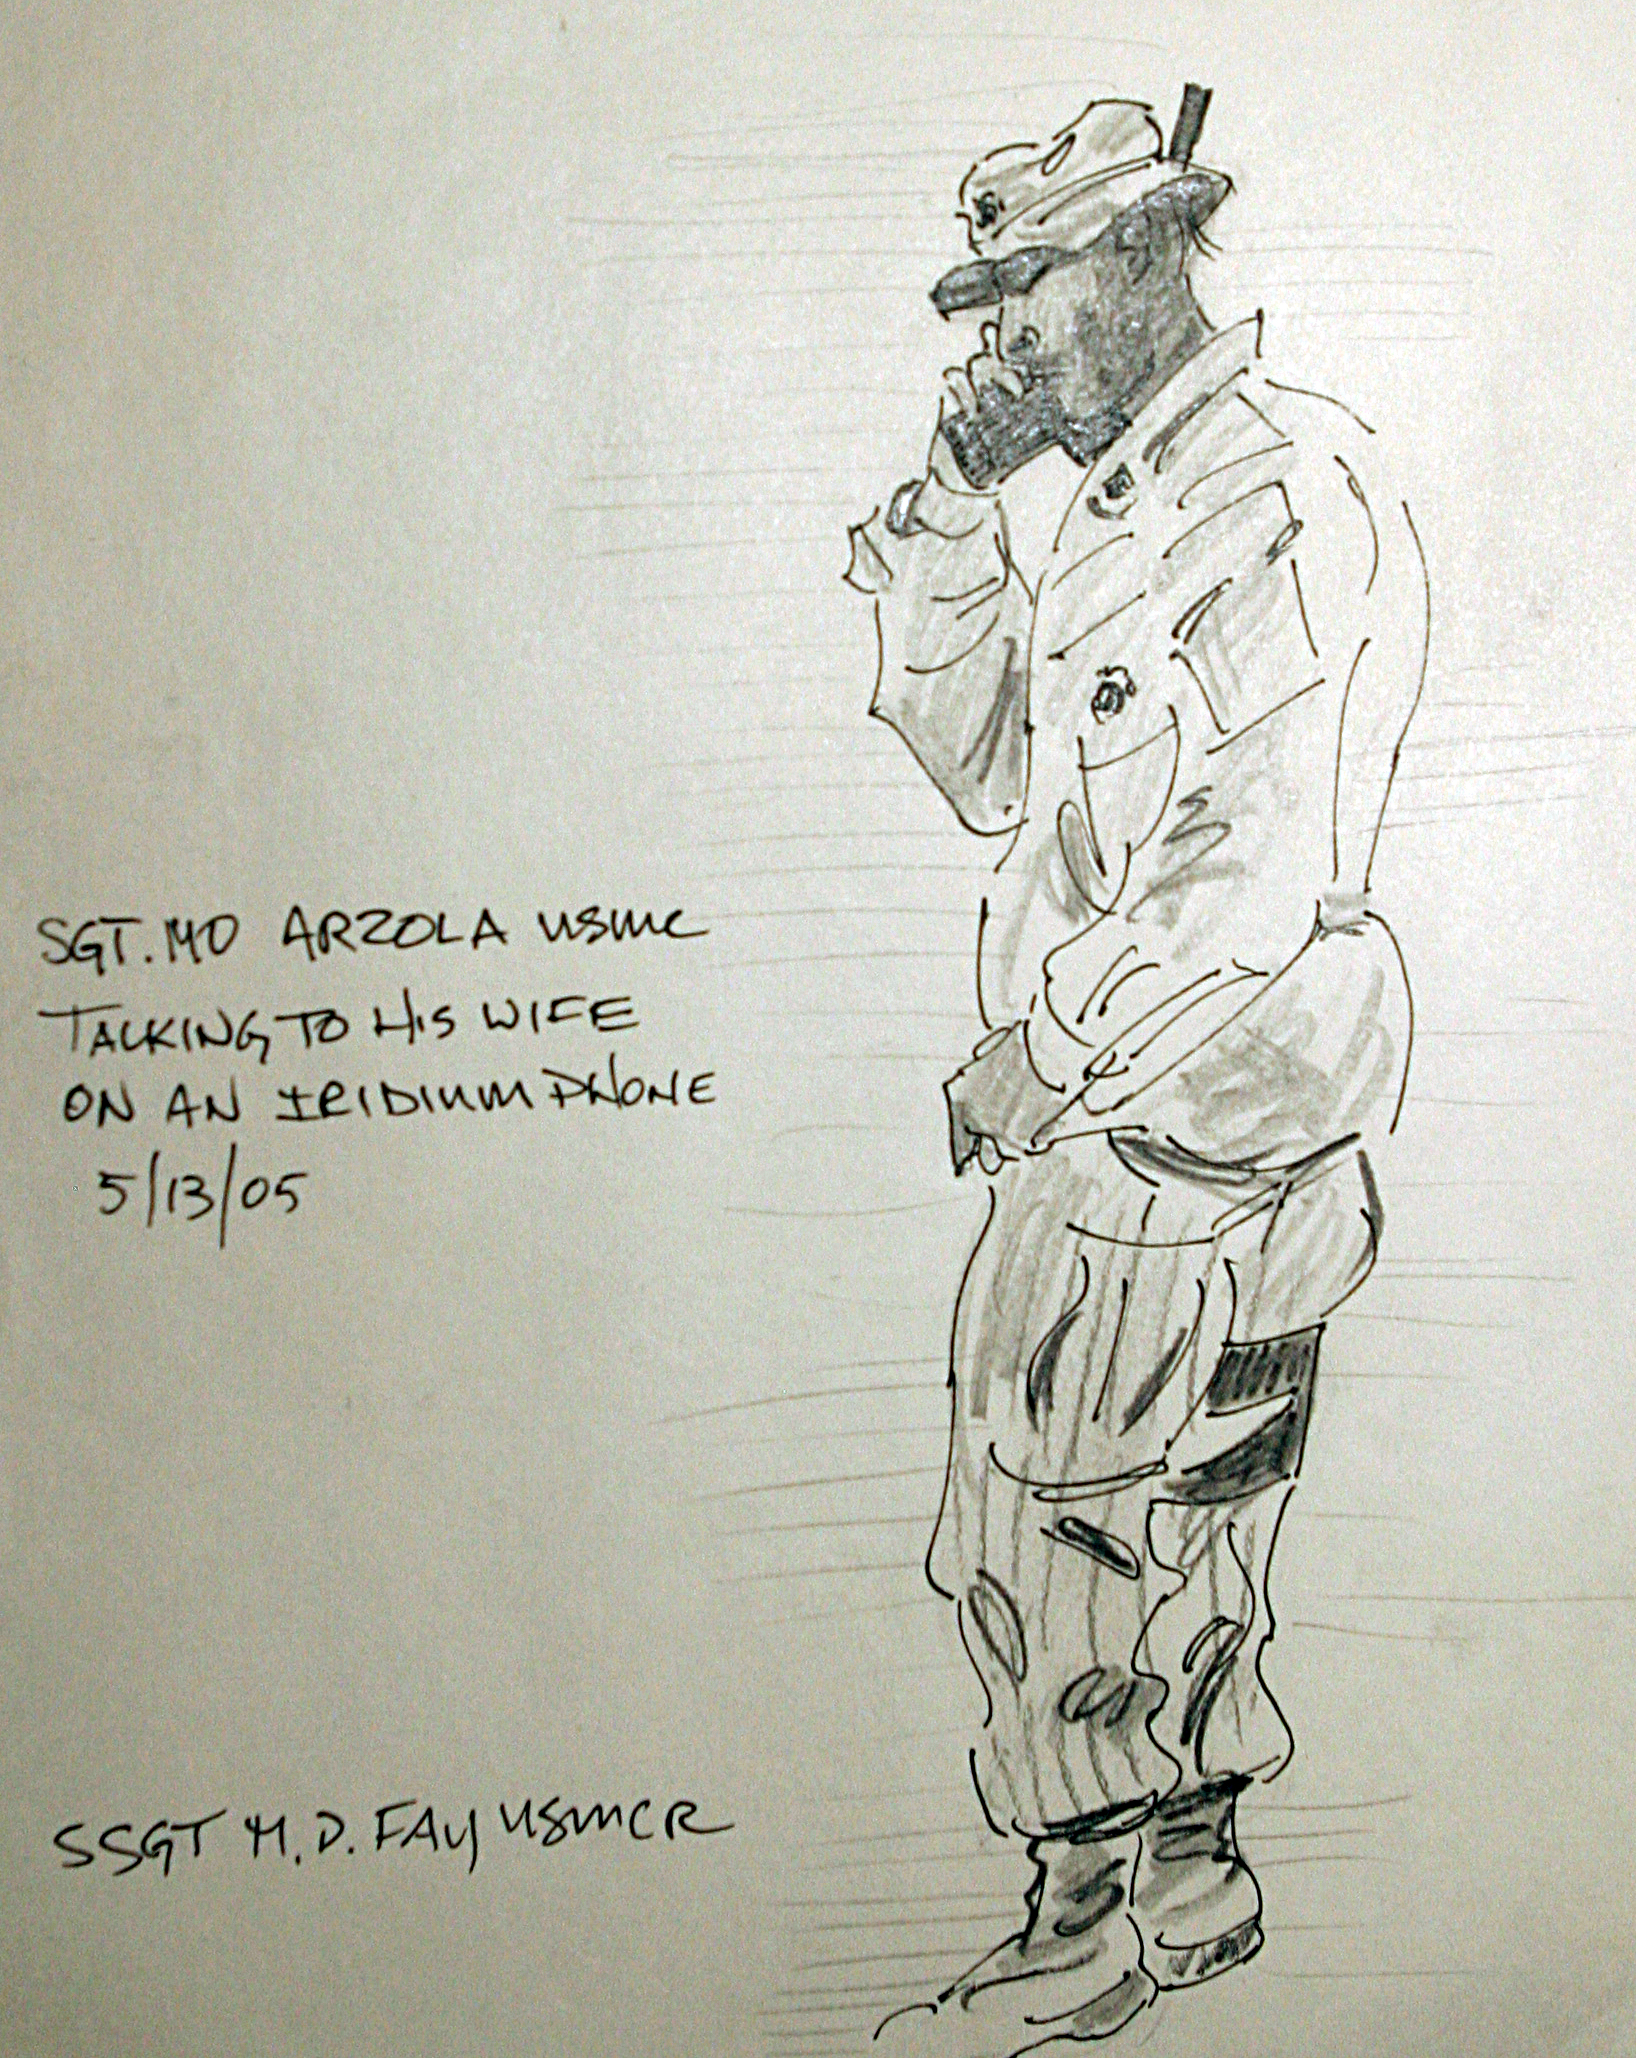 SGT. MO ARZOLA USMC
TALKING TO HIS WIFE
ON AN IRIDIUM PHONE
5/13/05
SSGT M.D. FAY USMCR